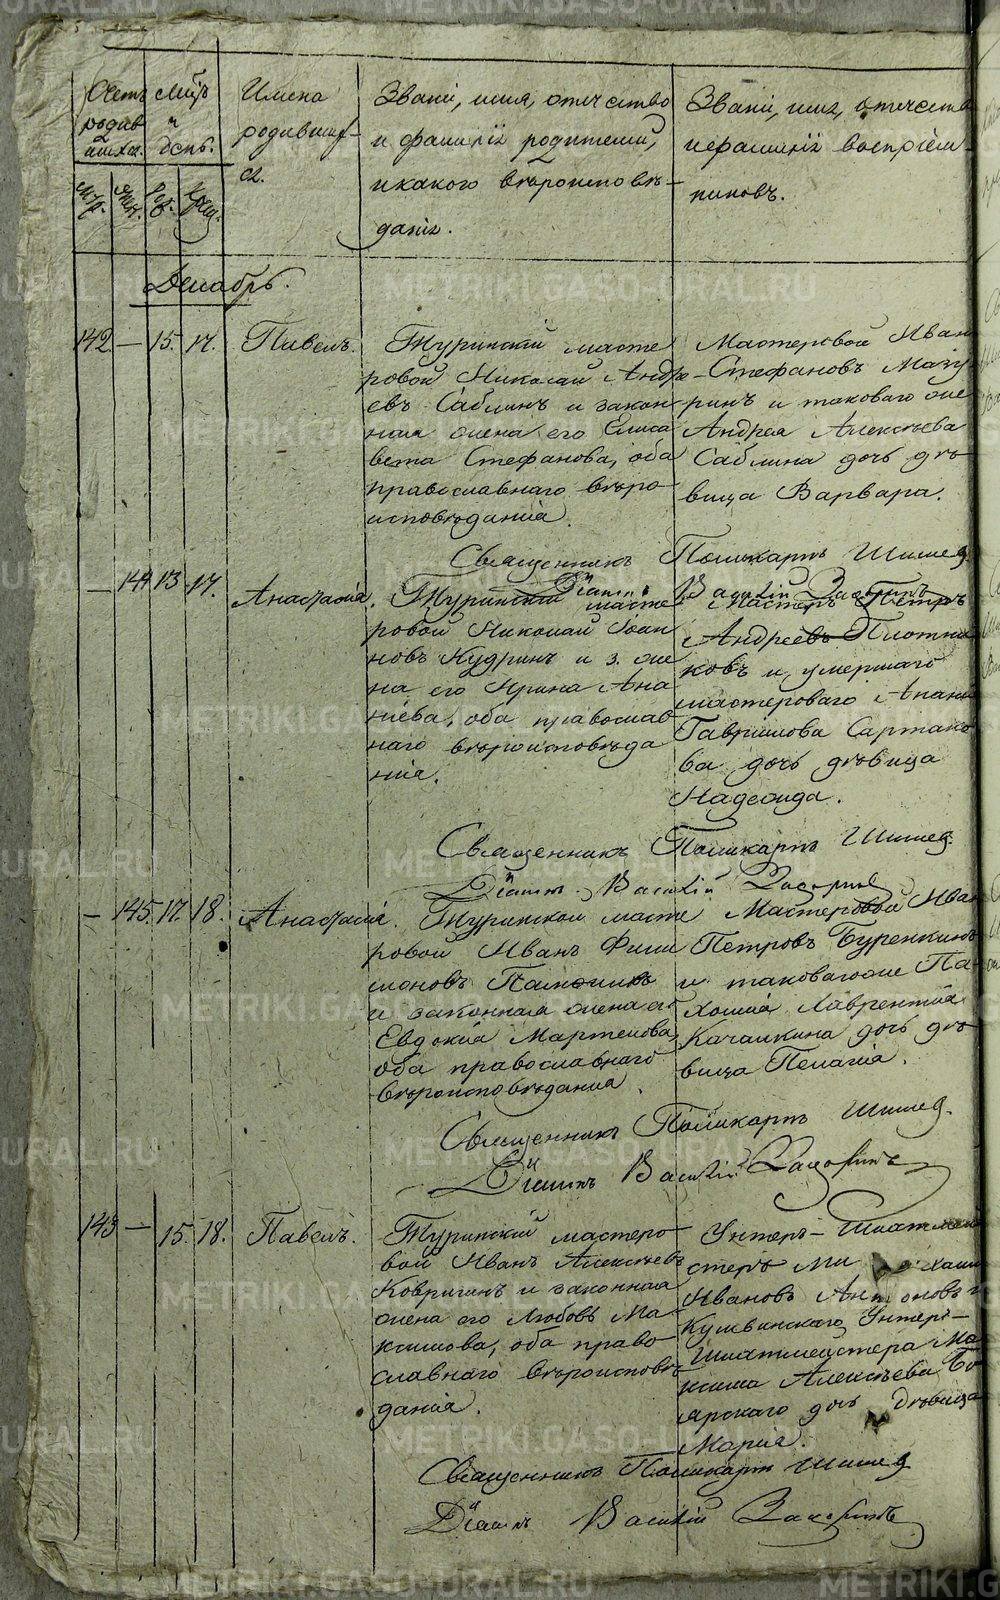 Счетъ родив шихся.
Мѣсяцъ и день.
Имена родившихся.
Званіе, имя, отчество и фамилія родителей, и какого вѣроисповѣданія.
Званіе, имя, отчество и фамилія воспріемниковъ.
Декабрь.
142 — 15. 17. Павелъ.
Туринскій масте
ровой Николай Андре
евъ Саблинъ и закон
ная жена его Елиса
вета Стефанова, оба
православнаго вѣро
исповѣданія.
Мастеровой Иван
Стефановъ Мазу
ринъ и таковаго же
Андрея Алексѣева
Саблина дочь дѣ
вица Варвара.
Священникъ Поликарпъ Шишев
Діаконъ Василій
— 144. 13. 17. Анастасія.
Туринскій масте
ровой Николай Іоан
новъ Кудринъ и з. же
на его Ирина Ана
ніева, оба православ
наго вѣроисповѣда
нія.
Мастеръ Петръ
Андреевъ Плотни
ковъ и умершаго
мастероваго
Гаврилова Сартако
ва дочь дѣвица
Надежда.
Священникъ Поликарпъ Шишев.
Діаконъ Василій
— 145. 17. 18. Анастасія.
Туринскій масте
ровой Иванъ Фили
моновъ
и законная жена его
Евдокія Мартемова,
оба православнаго
вѣроисповѣданія.
Мастеровой Иван
Петровъ Буренкинъ
и таковаго же Па-
хомія Лаврентія
Качалкина дочь дѣ
вица Пелагія.
Священникъ Поликарпъ Шишев.
Діаконъ Василій
143 — 15. 18. Павелъ.
Туринскій мастеро
вой Иванъ Алексѣевъ
Ковригинъ и законная
жена его Любовь Ма-
ксимова, оба право
славнаго вѣроисповѣ
данія.
Унтеръ-Шихтмей
стеръ Ми хаил
Ивановъ Антоновъ и
Кушвинскаго Унтеръ-
Шихтмейстера Ма
ксима Алексѣева Бо
ярскаго дочь Дѣвица
Марія.
Священникъ Поликарпъ Шишев
Діаконъ Василій
METRIKI.GASO-URAL.RU